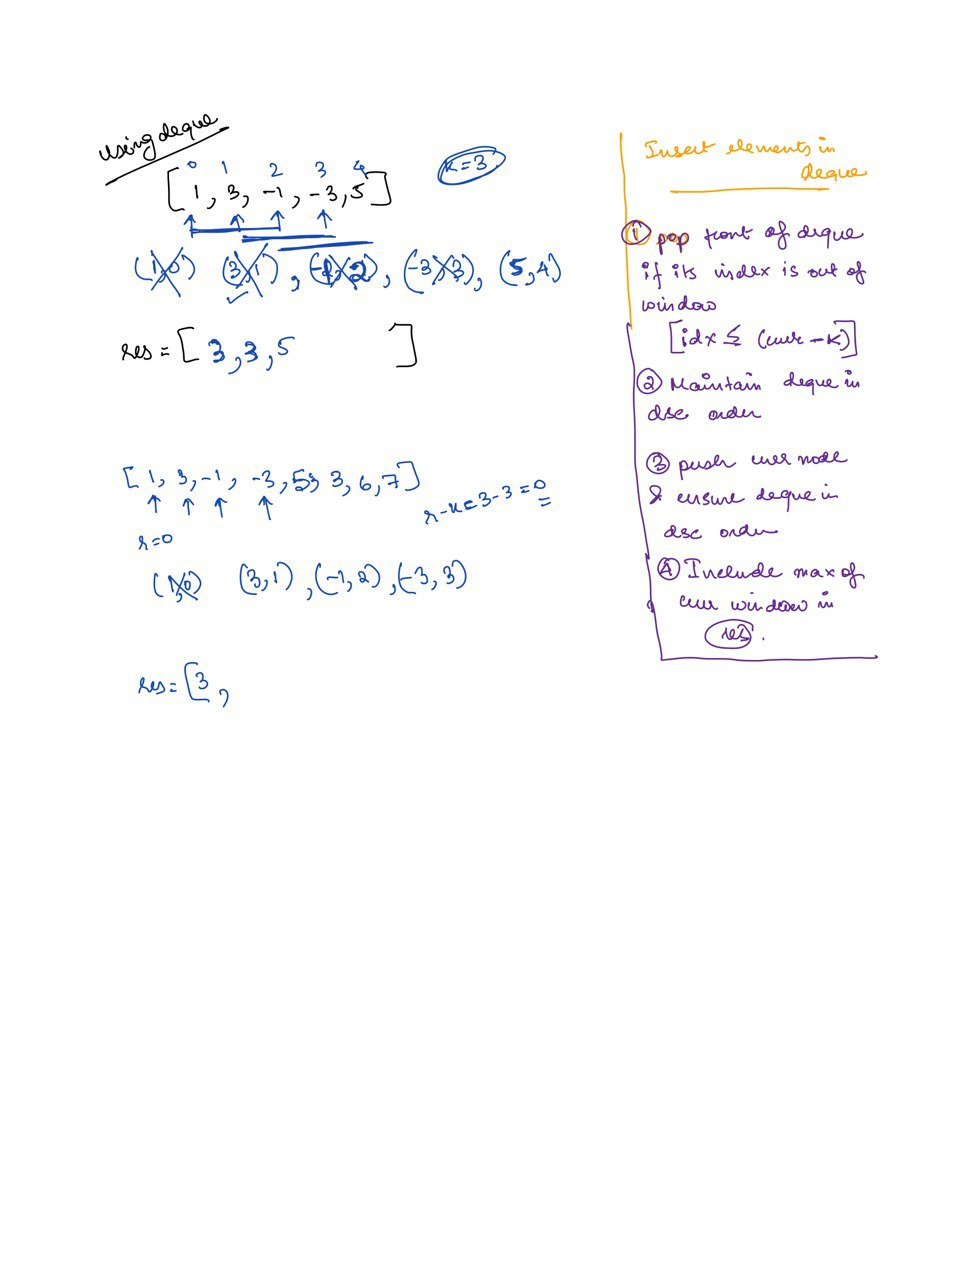 using deque
0 1 2 3 4
[1, 3, -1, -3, 5]
K=3
(1,0) (3,1), (-1,2), (-3,3), (5,4)
res = [3,3,5 ]
[1, 3, -1, -3, 5, 3, 6, 7]
r-k = 3-3 = 0
r=0
(1,0) (3,1), (-1,2), (-3,3)
res = [3,
Insert elements in
deque
① pop front of deque
if its index is out of
window
[idx ≤ (curr - K)]
② Maintain deque in
dsc order
③ push curr node
& ensure deque in
dsc order
④ Include max of
curr window in
res.